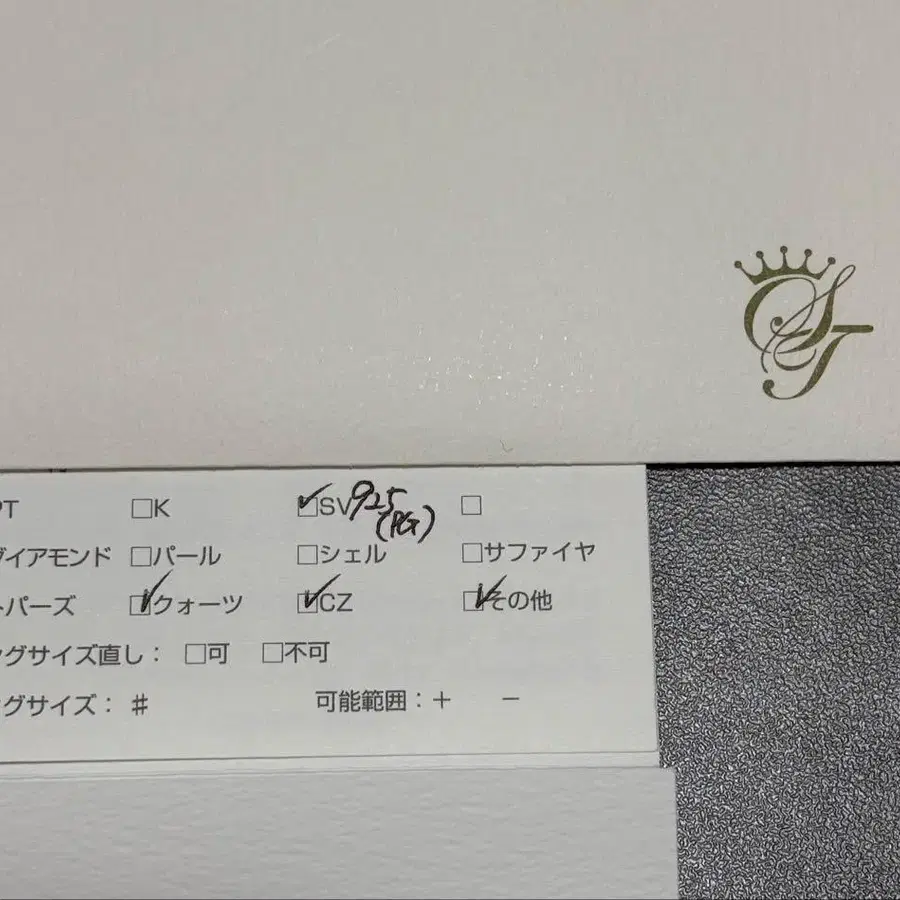 ST
PT □K ☑SV925 (PG) □
ダイアモンド □パール □シェル □サファイヤ
トパーズ ☑クォーツ ☑CZ ☑その他
ングサイズ直し： □可 □不可
ングサイズ： # 可能範囲：＋ －